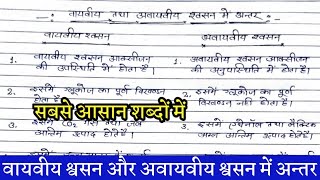 वायवीय तथा अवायवीय श्वसन में अन्तर :
वायवीय श्वसन
अवायवीय श्वसन
1. वायवीय श्वसन आक्सीजन
की उपस्थिति में होता है।
1. अवायवीय श्वसन आक्सीजन
की अनुपस्थिति में होता है।
2. इसमें ग्लूकोज का पूर्ण विखण्डन
होता है।
2. इसमें ग्लूकोज का पूर्ण
विखण्डन नहीं होता है।
सबसे आसान शब्दों में
3. इसमें CO₂ गैस तथा जल
अन्तिम उत्पाद होते हैं।
3. इसमें
अन्तिम उत्पाद होते हैं।
वायवीय श्वसन और अवायवीय श्वसन में अन्तर